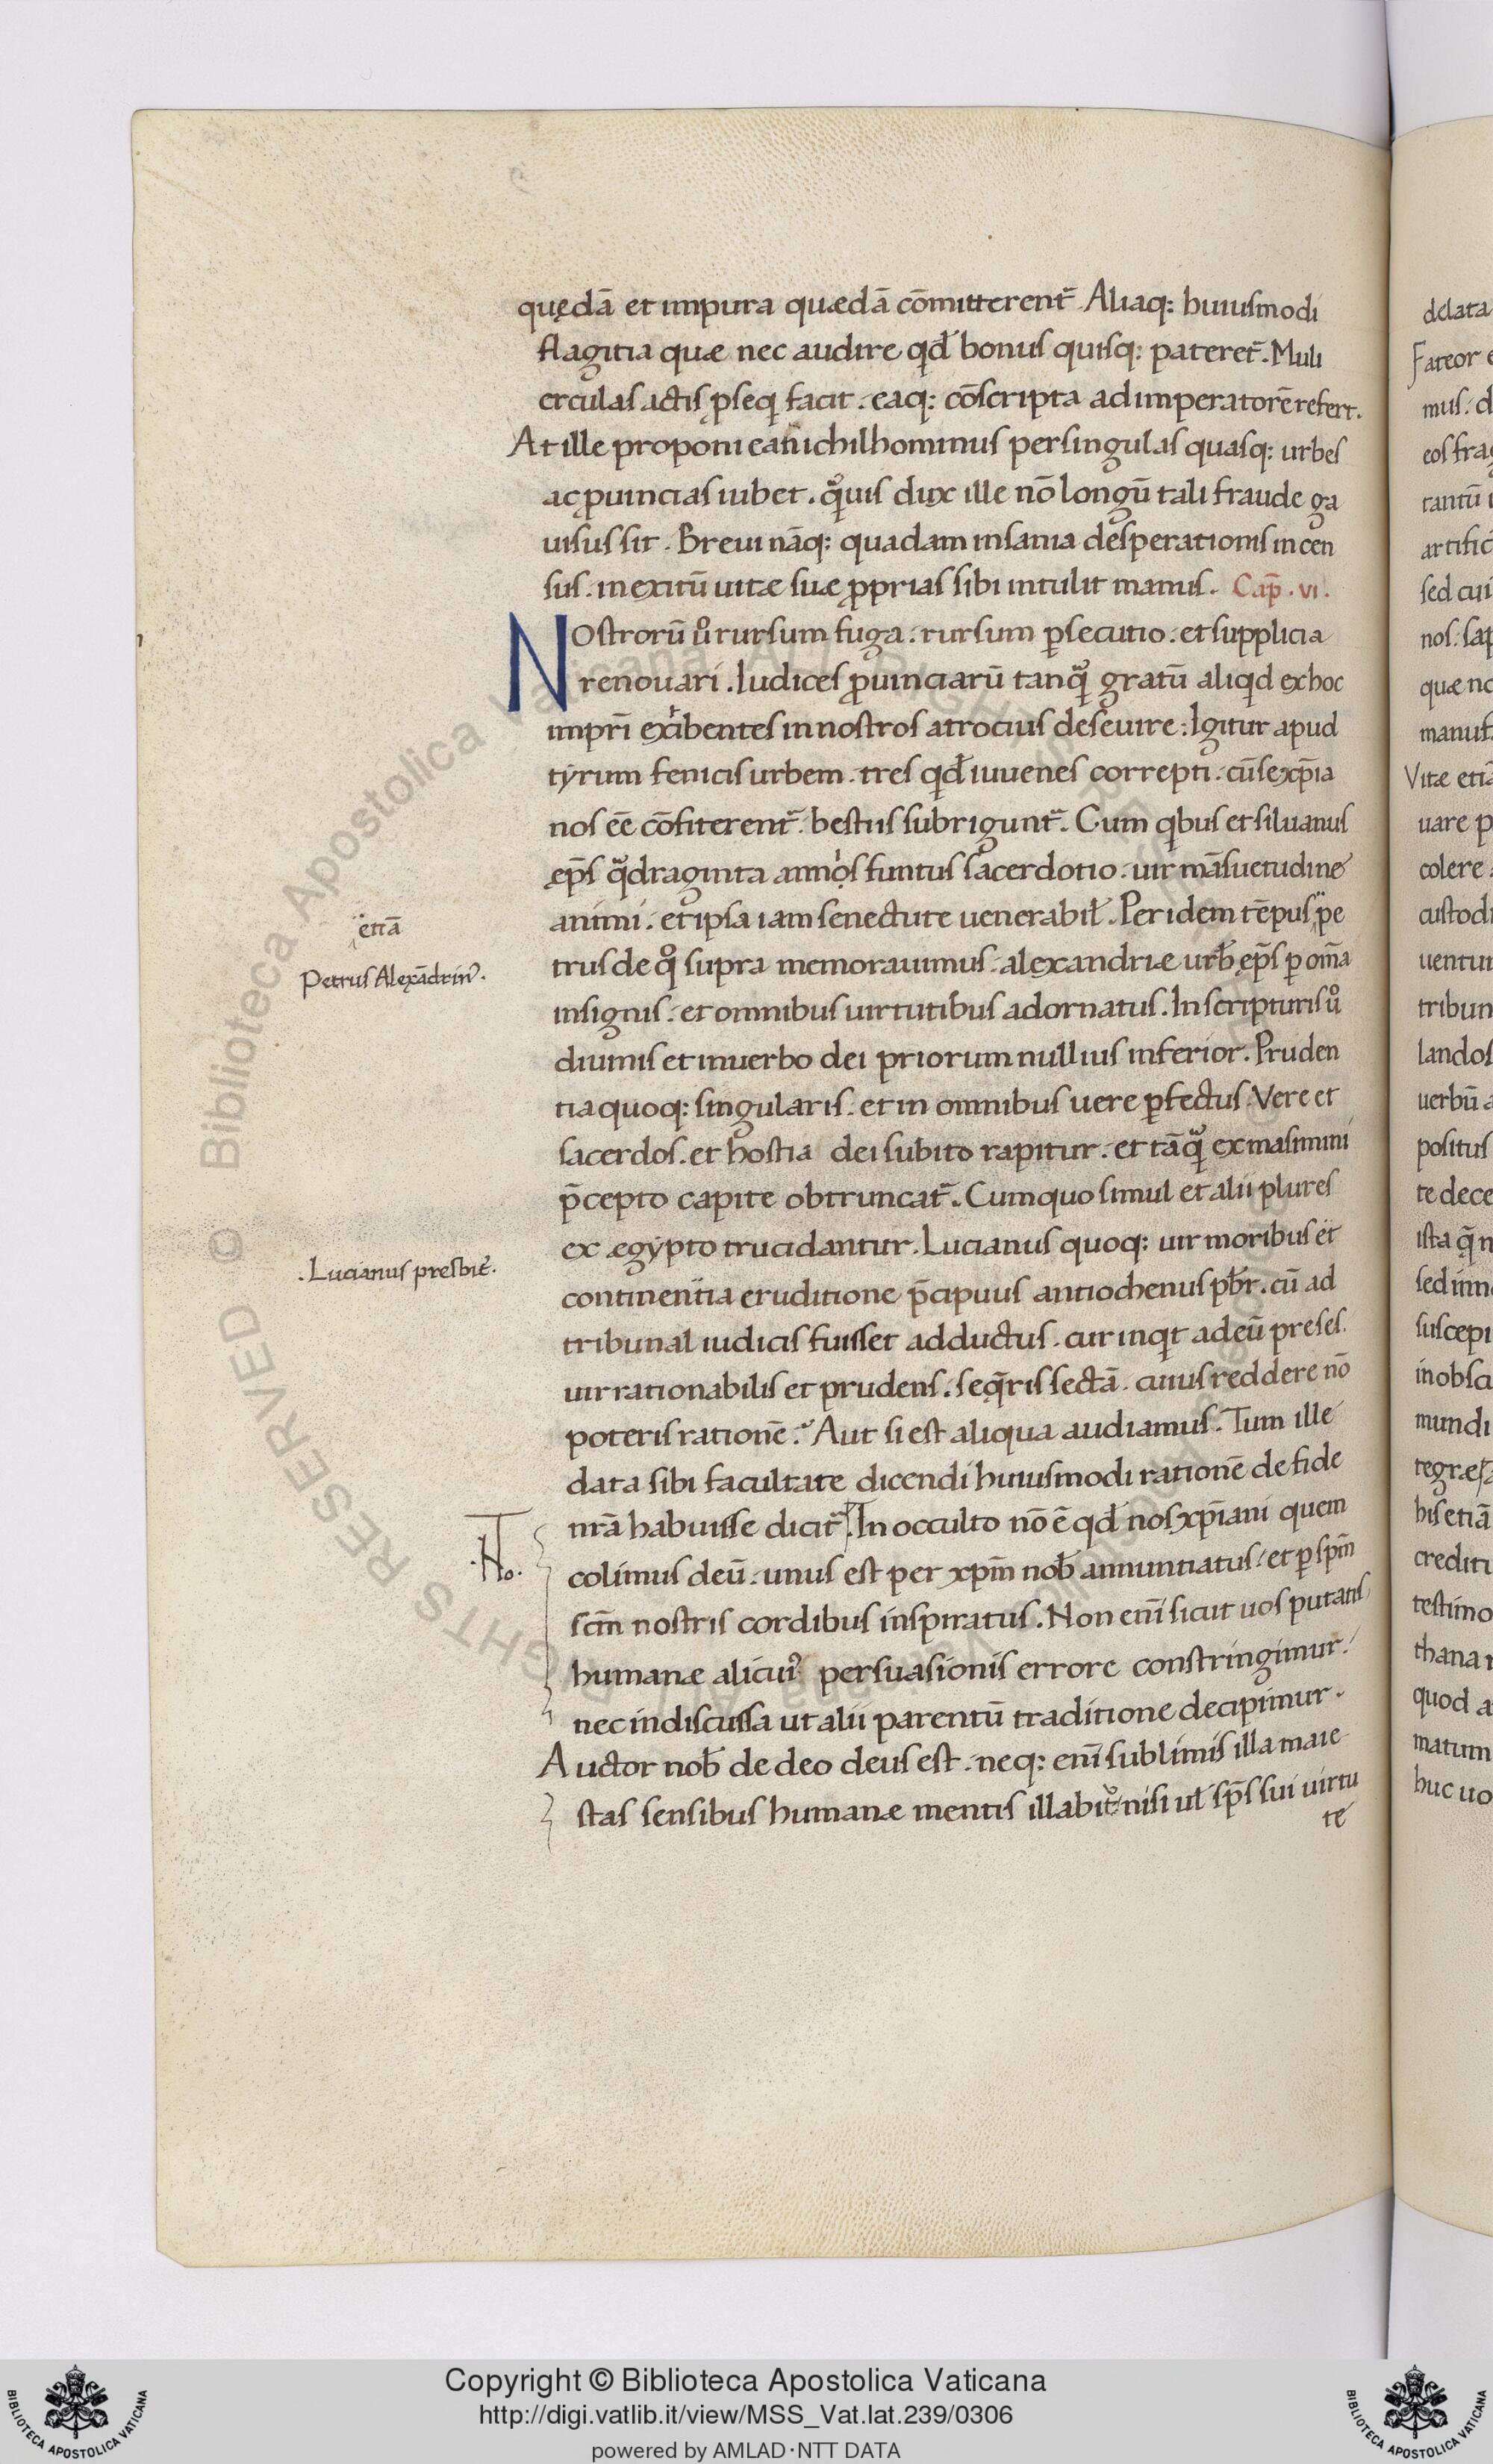 quędā et impura quædā cōmitterent᷑. Aliaq: huiusmodi
flagitia quæ nec audire qd̛ bonus quisq: pateret᷑. Muli
erculas actis ꝑseq facit. eaq: cōscripta ad imperatorē refert.
At ille proponi ea nichilhominus per singulas quasq: urbes
ac ꝓuincias iubet. qᷓuis dux ille nō longū tali fraude ga
uisus sit. Breui nāq: quadam insania desperationis incen
sus. in exitū uitæ suæ ꝓprias sibi intulit manus. Cap̄. vi.
Nostrorū u̾o rursum fuga. rursum ꝑsecutio. et supplicia
renouari. Iudices ꝓuinciarū tanqᷓ gratū aliqd ex hoc
impr̄i exibentes in nostros atrocius deseuire: Igitur apud
tyrum fenicis urbem. tres qd̛ iuuenes correpti. cū se xp̄ia
nos eē cōfiterent᷑. bestiis subrigunt᷑. Cum qbus et siluanus
ep̄s qᷓdraginta annos funtus sacerdotio. uir māsuetudine
animi. et ipsa iam senectute uenerabil̛. Per idem tēpus pe
etiā
trus de qͦ supra memorauimus. alexandriæ urb̛ ep̄s ꝑ om̄a
Petrus Alexādrin᷒.
insignis. et omnibus uirtutibus adornatus. In scripturis uͦ
diuinis et in uerbo dei priorum nullius inferior. Pruden
tia quoq: singularis. et in omnibus uere ꝑfectus. Vere et
sacerdos. et hostia dei subito rapitur. et tāqᷓ ex masimini
p̄cepto capite obtruncat᷑. Cum quo simul et alii plures
ex ægypto trucidantur. Lucianus quoq: uir moribus et
.Lucianus presbit̛e.
continentia eruditione p̄cipuus antiochenus pb̄r. cū ad
tribunal iudicis fuisset adductus. cur inqt ad eū preses.
uir rationabilis et prudens. seq̄ris sectā. cuius reddere nō
poteris rationē. Aut si est aliqua audiamus. Tum ille
data sibi facultate dicendi huiusmodi rationē de fide
nr̄a habuisse dicit᷑. In occulto nō ē qd̛ nos xp̄iani quem
colimus deū. unus est per xp̄m nob̛ annuntiatus. et ꝑ sp̄m
sc̄m nostris cordibus inspiratus. Non eni̅ sicut uos putatis
humanæ alicui᷒ persuasionis errore constringimur.
nec indiscussa ut alii parentū traditione decipimur.
Auctor nob̛ de deo deus est. neq: eni̅ sublimis illa maie
stas sensibus humanæ mentis illabit᷑. nisi ul̛ sp̄s sui uirtu
te
delata
Fateor
mus. d
eos fra
tantū
artific
sed cui
nos. sa
quæ n
manuf
Vitæ etiā
uare p
colere
custod
uentur
tribun
landos
uerbū
positus
te dece
ista
sed inn
suscepi
in obsc
mundi
tegræ
his etiā
crediti
testimo
thana
quod a
matum
huc uo
Copyright © Biblioteca Apostolica Vaticana
http://digi.vatlib.it/view/MSS_Vat.lat.239/0306
powered by AMLAD·NTT DATA